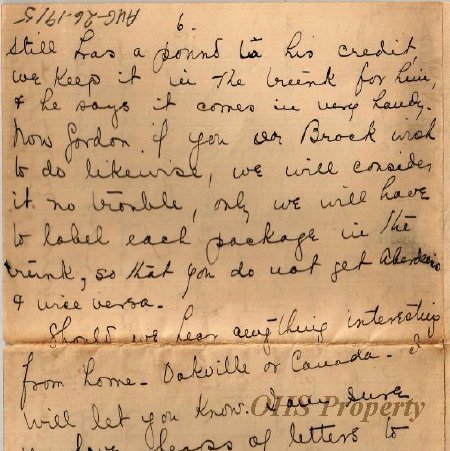 AUG-26-1915
6.
still has a pound to his credit,
we keep it in the trunk for him,
& he says it comes in very handy.
Now Gordon if you or Brock wish
to do likewise, we will consider
it no trouble, only we will have
to label each package in the
trunk, so that you do not get Aberdein's
& vice versa.
Should we hear anything interesting
from home - Oakville or Canada - I
will let you know. I am sure
you have heaps of letters to
OHS Property